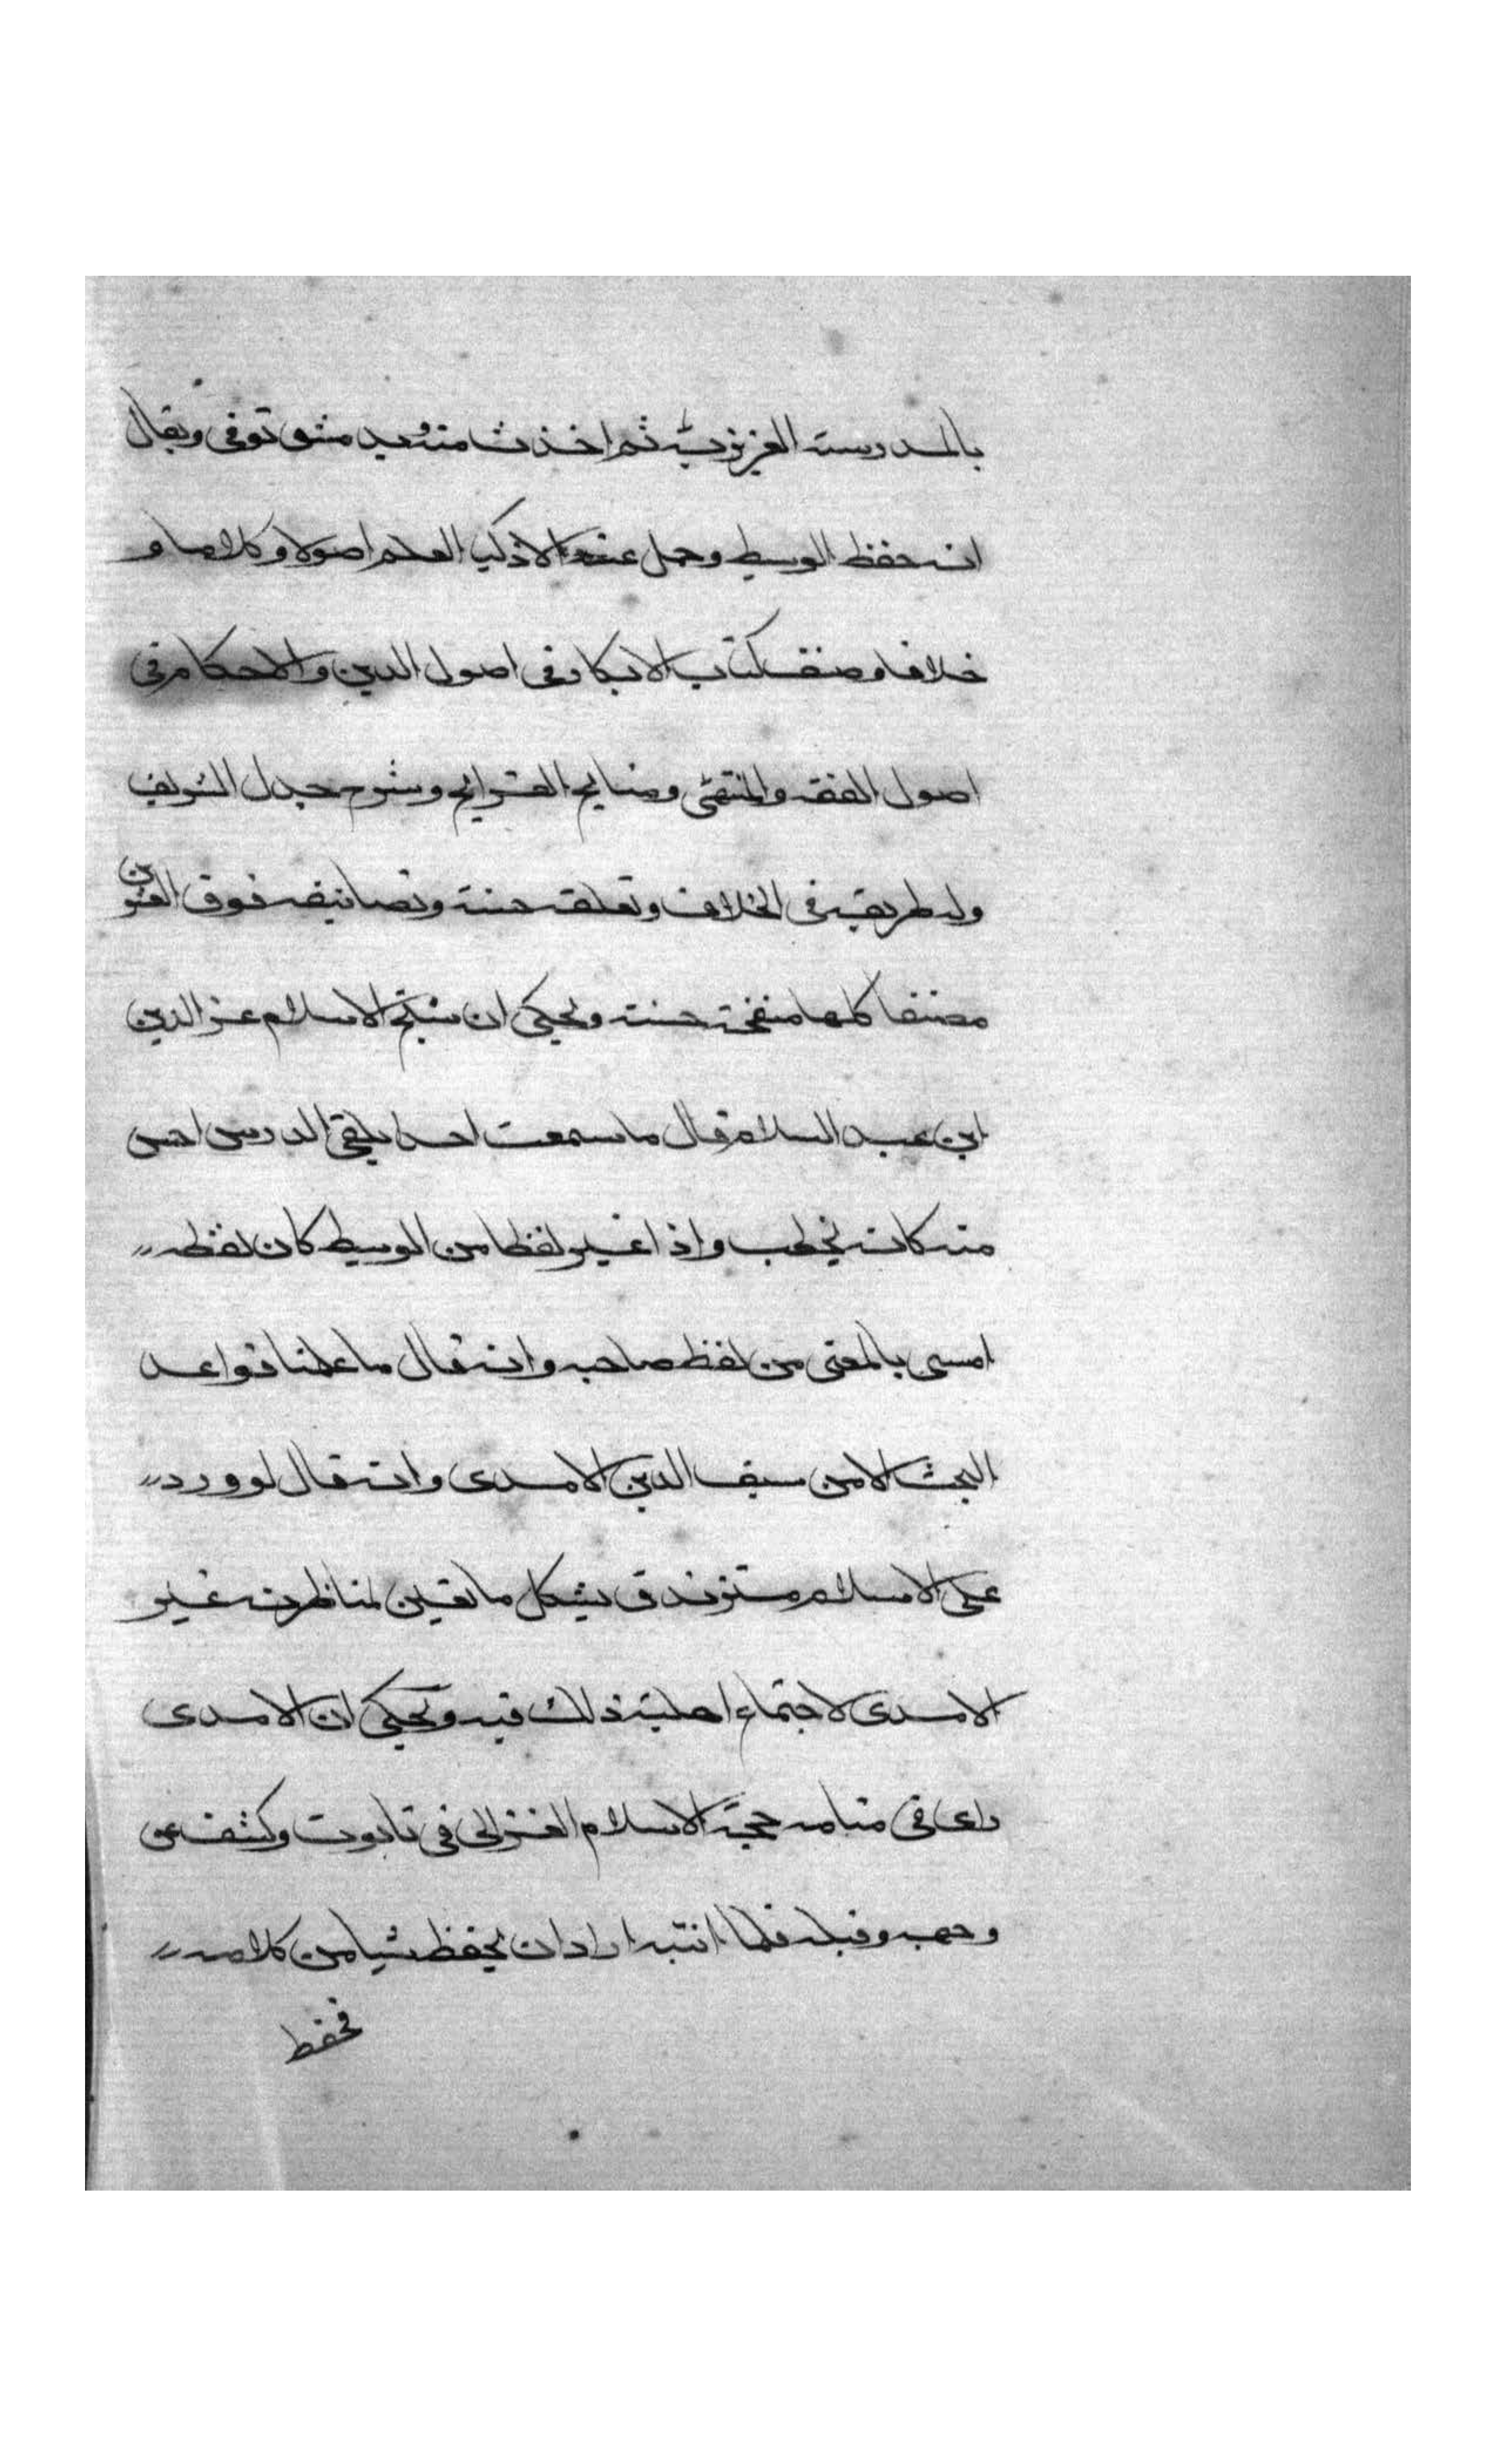 بالمدرسة العزيزية ثم اخذت منه وبدمشق توفى ويقال
انه حفظ الوسيط وحمل عنه الاذكيا العلم اصولا وكلاما و
خلافا وصنف كتاب الابكار فى اصول الدين والاحكام فى
اصول الفقه والمنتهى ومنايح القرايح وشرح جدل الشريف
وله طريقة فى الخلاف وتعلقه حسنة وتصانيفه فوق العشرين
مصنفا كلها منقحة حسنة ويحكى ان شيخ الاسلام عز الدين
ابن عبد السلام قال ما سمعت احدا يلقى الدرس احسن
منه كانه يخطب واذا غير لفظا من الوسيط كان لفظه
امس بالمعنى من لفظ صاحبه وانه قال ما علمنا قواعد
البحث الا من سيف الدين الامدى وانه قال لو ورد
على الاسلام متزندق يشكل ما تعين لمناظرته غير
الامدى لاجتماع اهلية ذلك فيه ويحكى ان الامدى
راى فى منامه حجة الاسلام الغزالى فى تابوت وكشف عن
وجهه وقبله فلما انتبه اراد ان يحفظ شيا من كلامه
فحفظ